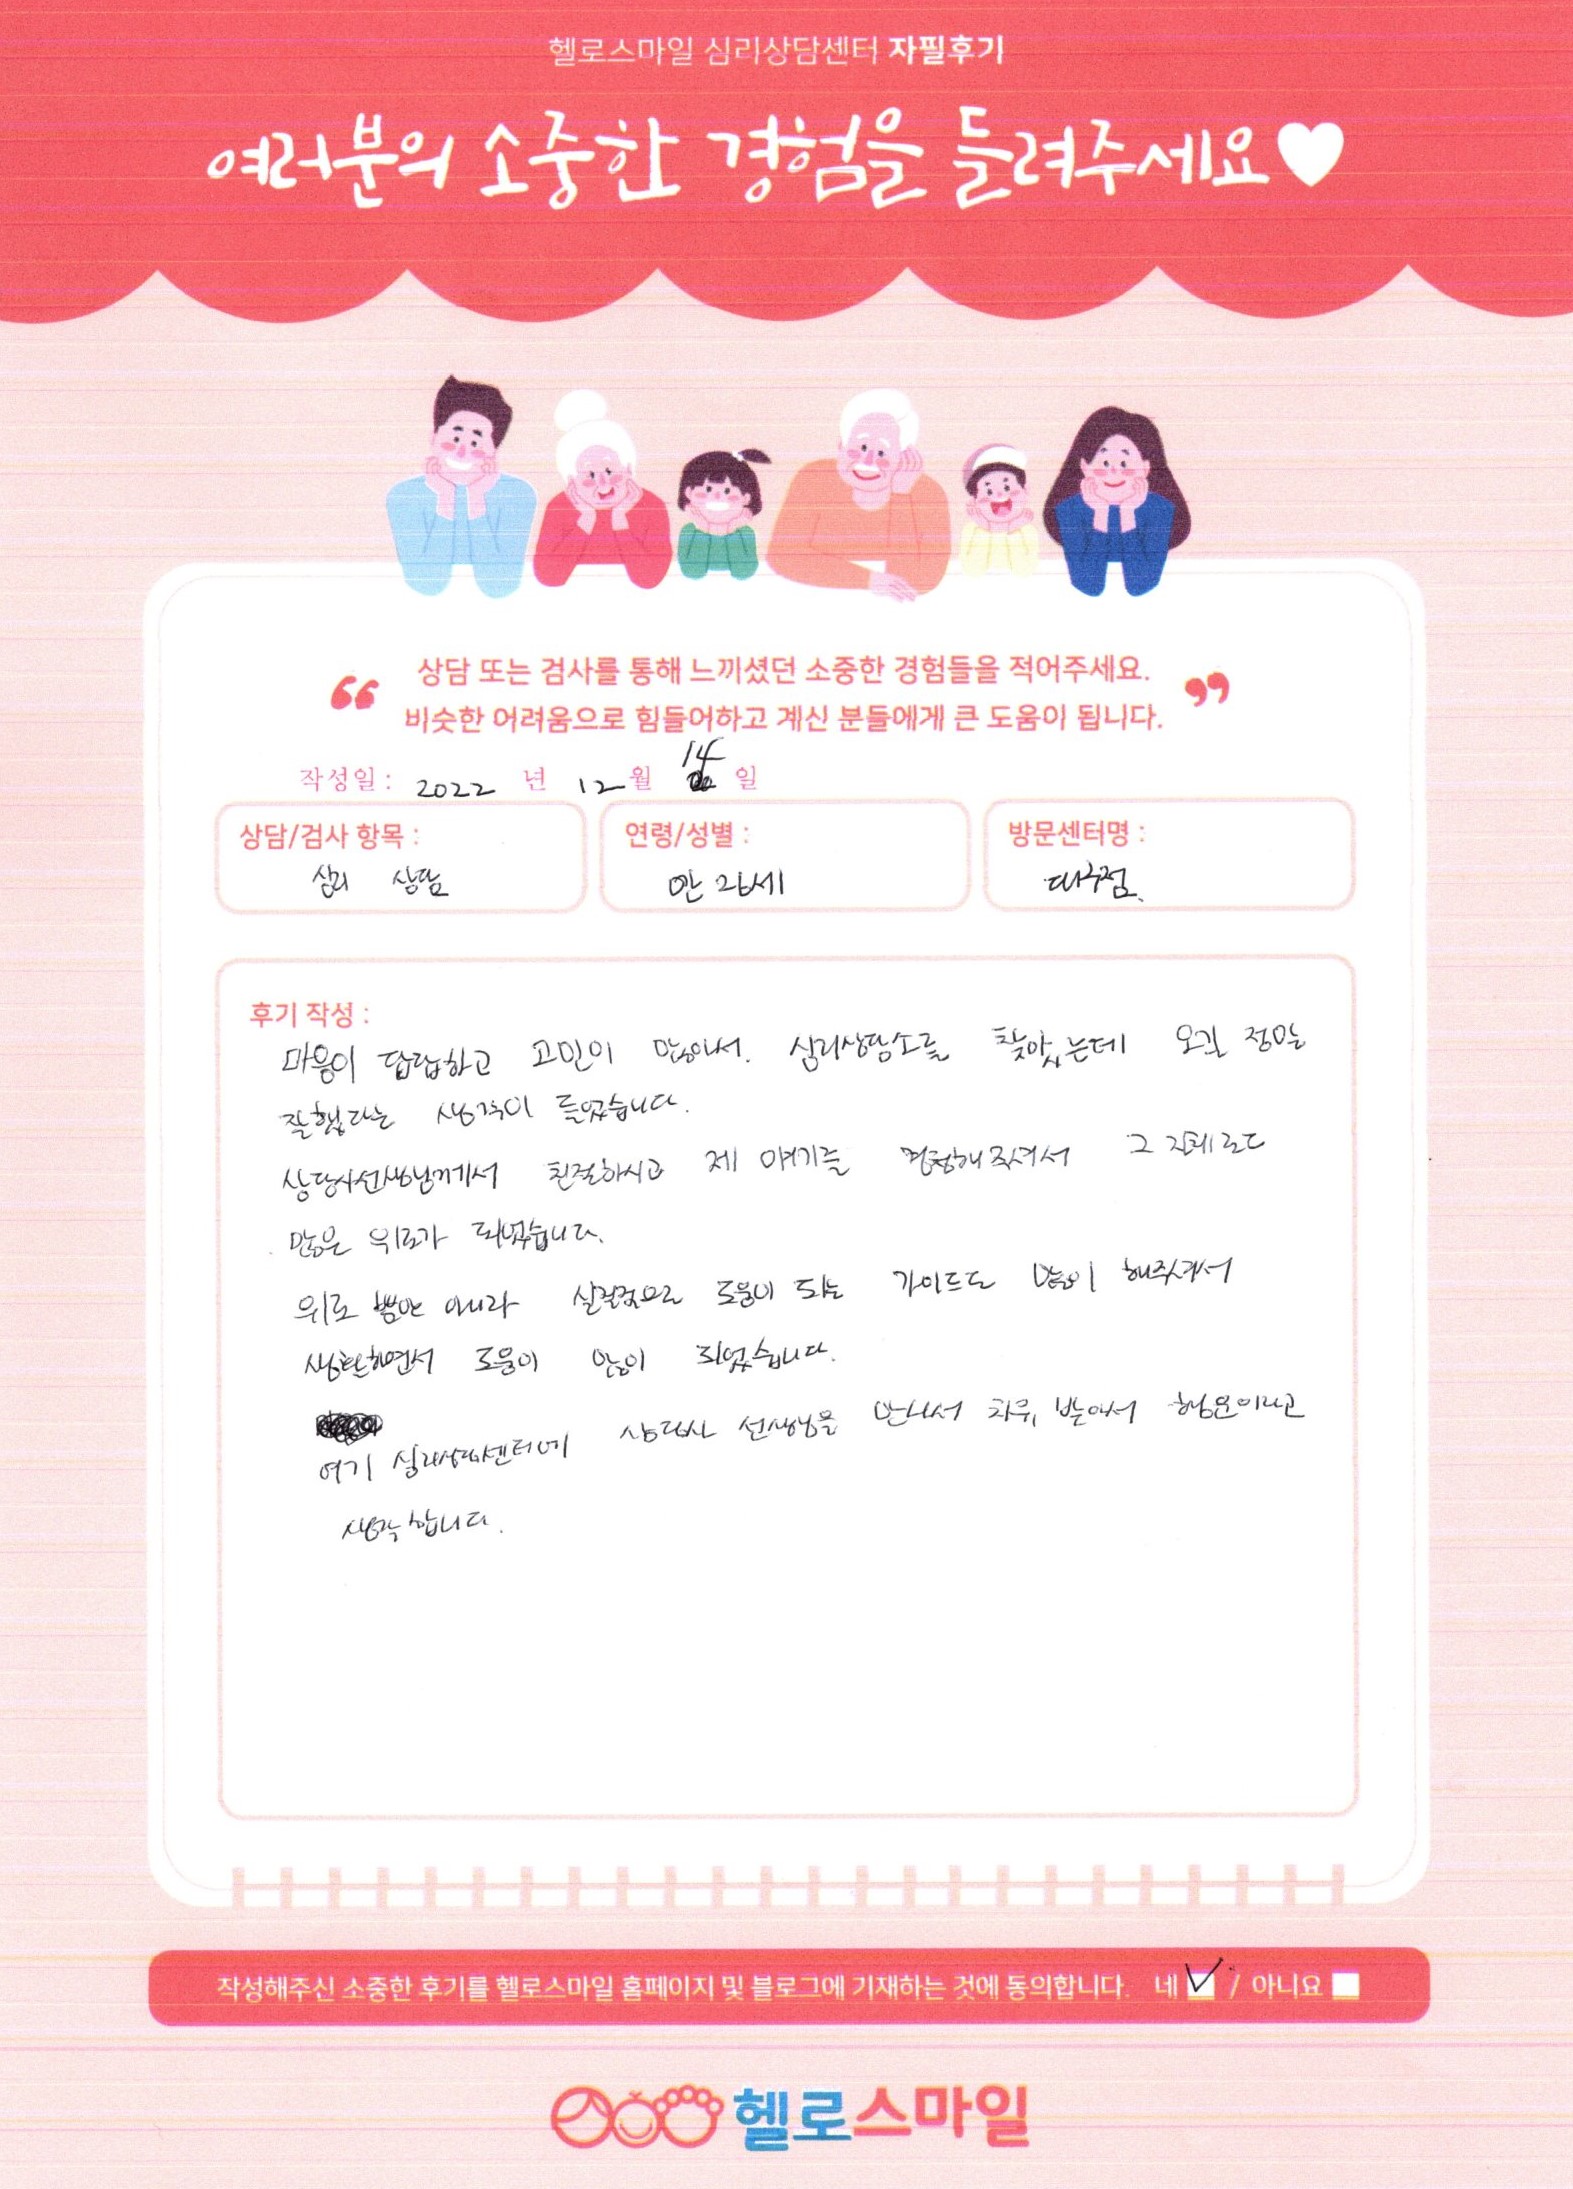 헬로스마일 심리상담센터 자필후기
여러분의 소중한 경험을 들려주세요
상담 또는 검사를 통해 느끼셨던 소중한 경험들을 적어주세요.
비슷한 어려움으로 힘들어하고 계신 분들에게 큰 도움이 됩니다.
작성일 : 2022 년 12 월 14 일
상담/검사 항목 :
심리 상담
연령/성별 :
만 21세
방문센터명 :
대구점.
후기 작성 :
마음이 답답하고 고민이 많아서. 심리상담소를 찾았는데 오길 정말
잘했다는 생각이 들었습니다.
상담사선생님께서 친절하시고 제 얘기를 경청해주셔서 그 자체로도
많은 위로가 되었습니다.
위로 뿐만 아니라 실질적으로 도움이 되는 가이드도 많이 해주셔서
생활하면서 도움이 많이 되었습니다.
여기 심리상담센터에 상담사 선생님을 만나서 치유, 받아서 행운이라고
생각합니다.
작성해주신 소중한 후기를 헬로스마일 홈페이지 및 블로그에 기재하는 것에 동의합니다. 네 / 아니요
헬로스마일